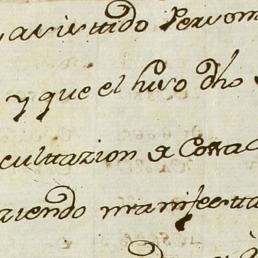 asistido Person
y que el hizo dho
cultazion a Costa
aiendo manifesta